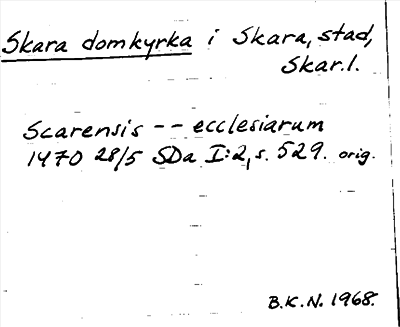 Skara domkyrka i Skara, stad,
Skar.l.
Scarensis -- ecclesiarum
1470 28/5 SDa I:2, s. 529. orig.
B.K.N. 1968.